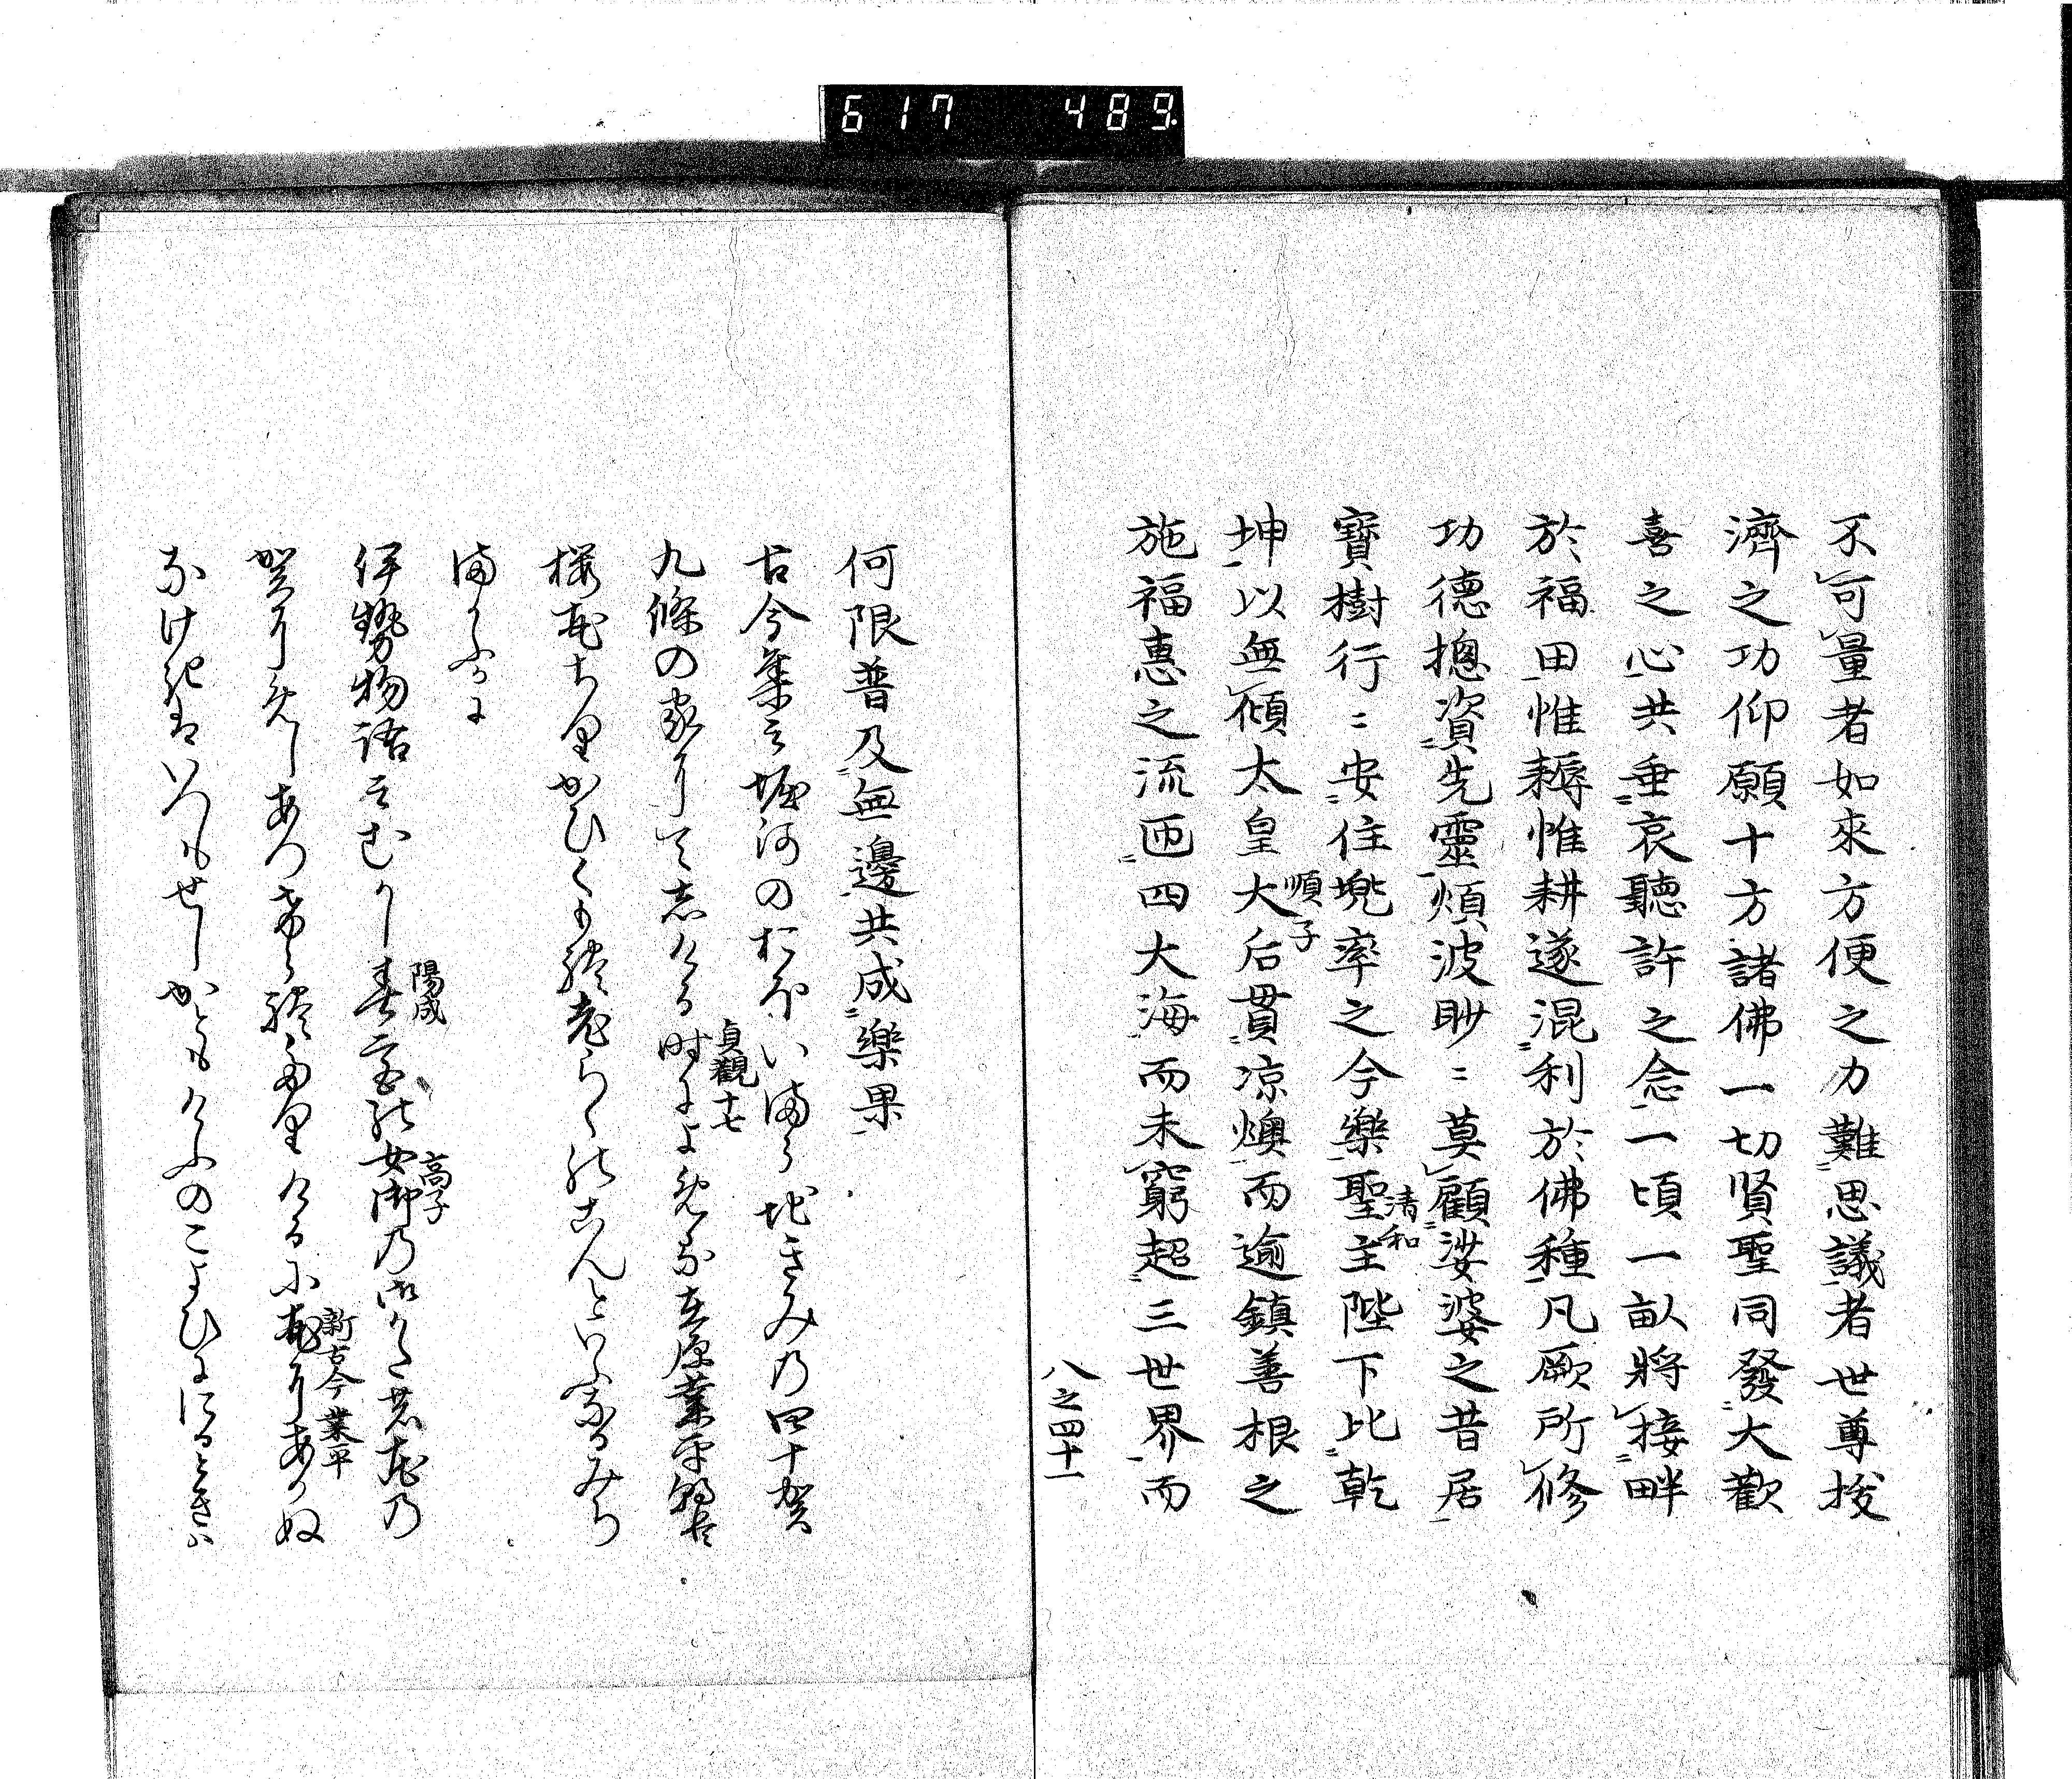 617 489
不可量者如來方便之力難思議者世尊拔
濟之功仰願十方諸佛一切賢聖同發大歡
喜之心共垂哀聽許之念一頃一畝將接畔
於福田惟耨惟耕遂混利於佛種凡厥所修
功德摠資先靈煩波眇〻莫顧娑婆之昔居
寶樹行〻安住兜率之今樂聖主陛下比乾
清和
坤以無傾太皇大后貫凉燠而逾鎮善根之
順子
施福惠之流迊四大海而未窮超三世界而
八之四十一
何限普及無邊共成樂果
古今集云堀河のおほいまうちきみの四十賀
九條の家にてしける時によめる在原業平朝臣
貞觀十七
櫻花ちりかひくもれ老らくのこんといふなるみち
まかふかに
伊勢物語云むかし春宮の女御の御かたの花の
陽成
高子
賀にめしあつけられたりけるに花にあかぬ
新古今業平
なけきはいつもせしかともけふのこよひににるときは